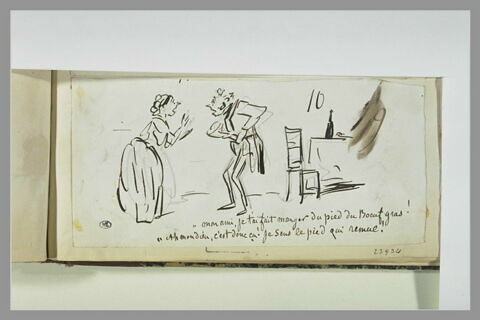 10
„ mon ami, je t'ai fait manger du pied du Boeuf gras !
„ Ah mon dieu, c'est donc ça. je sens le pied qui remue !
23934